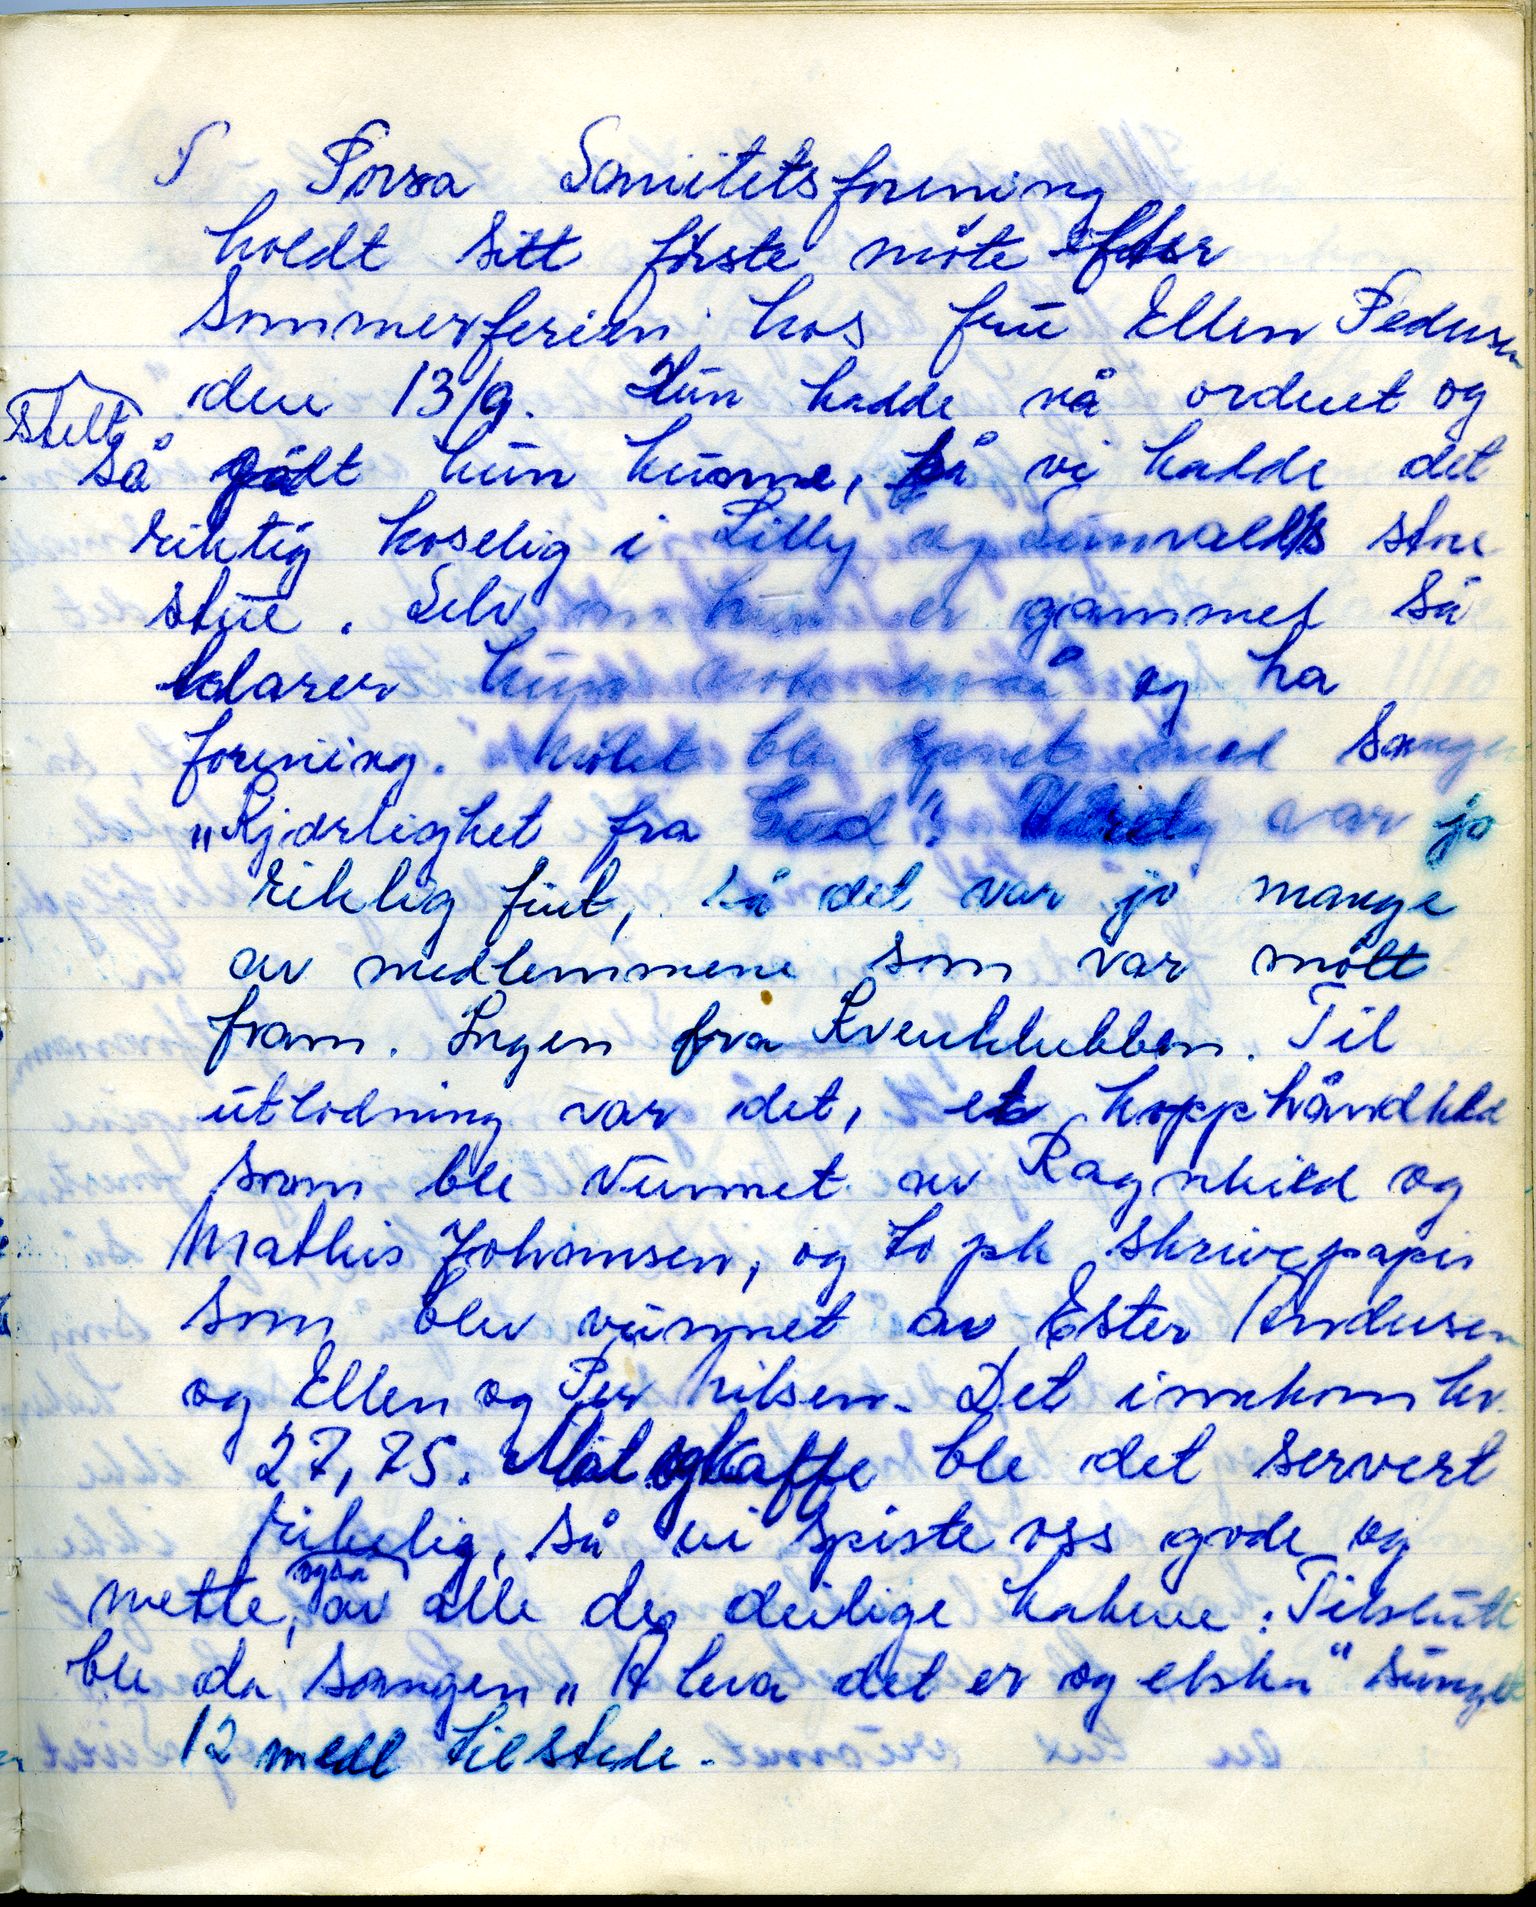 Porsa Sanitetsforening
holdt sitt første møte efter
Sommerferien hos fru Ellen Pedersen
den 13/9. Hun hadde nå ordnet og
stelt
så godt hun kunne, så vi hadde det
riktig koselig i Lilly og Sunvalds store
stue. Selv om hun er gammel så
klarer hun nok ennå og ha
forening. Møtet ble åpnet med sangen
„Kjærlighet fra Gud". var jo
riktig fint, så det var jo mange
av medlemmene som var møtt
fram. Ingen fra Kvenklubben. Til
utlodning var det, et kopphåndkle
som ble vunnet av Ragnhild og
Mathis Johansen, og to pk skrivepapir
som blev vunnet av Ester Andersen
og Ellen og Per Nilsen. Det innkom kr.
27,75. Mat og kaffe ble det servert
rikelig, så vi spiste oss gode og
også
mette, av alle de deilige kakene. Tilslutt
ble da sangen „Å leva det er og elska" sunget
12 medl tilstede.